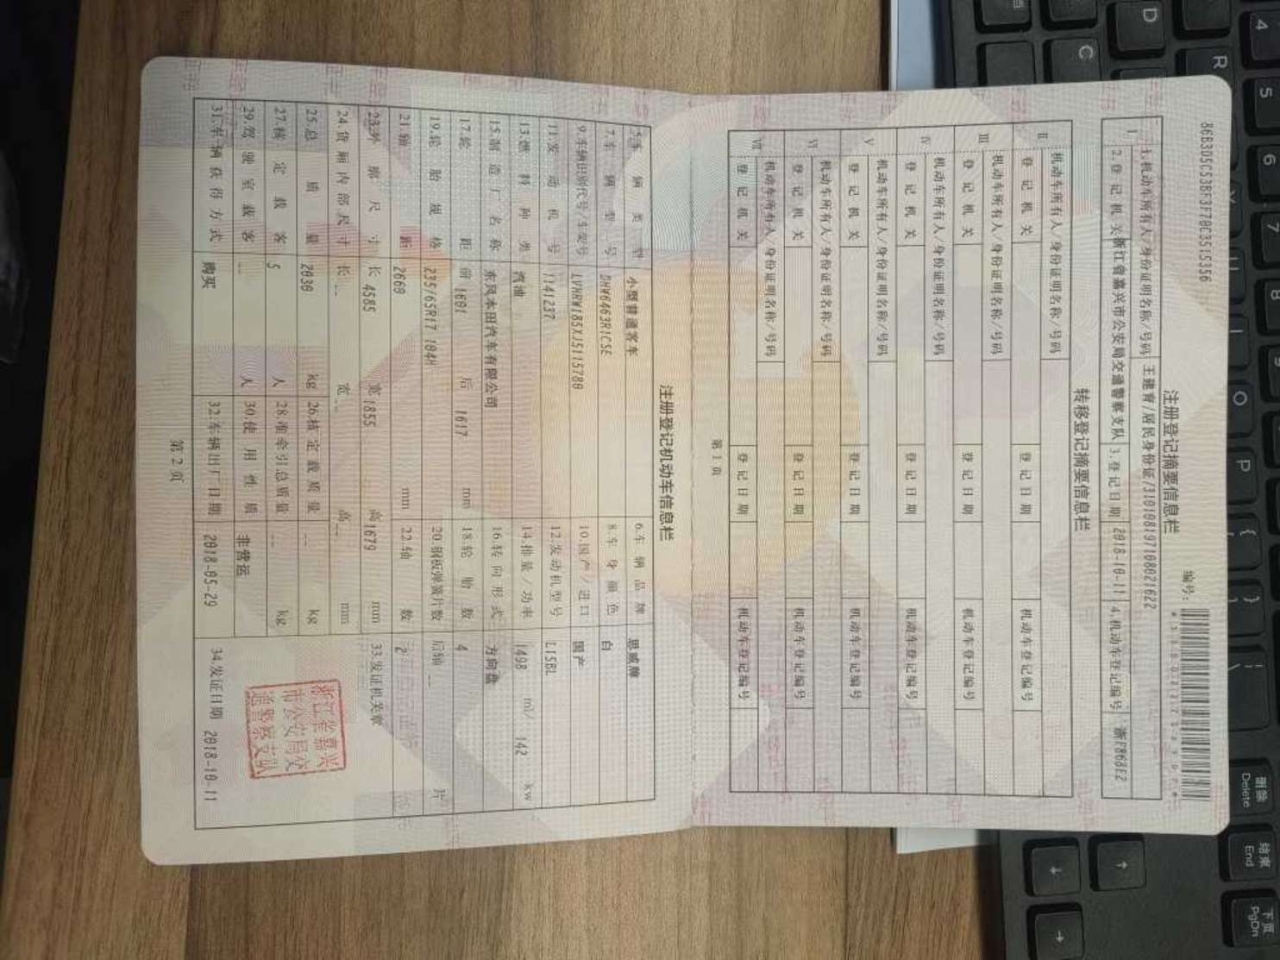 86B305C53BF3770C3515356
编号:
注册登记摘要信息栏
I 1.机动车所有人/身份证明名称/号码 王建育/居民身份证/310108197108021622
2.登记机关 浙江省嘉兴市公安局交通警察支队 3.登记日期 2018-10-11 4.机动车登记编号 浙F868E2
转移登记摘要信息栏
II 机动车所有人/身份证明名称/号码
登记机关 登记日期 机动车登记编号
III 机动车所有人/身份证明名称/号码
登记机关 登记日期 机动车登记编号
IV 机动车所有人/身份证明名称/号码
登记机关 登记日期 机动车登记编号
V 机动车所有人/身份证明名称/号码
登记机关 登记日期 机动车登记编号
VI 机动车所有人/身份证明名称/号码
登记机关 登记日期 机动车登记编号
VII 机动车所有人/身份证明名称/号码
登记机关 登记日期 机动车登记编号
第1页
注册登记机动车信息栏
5.车辆类型 小型普通客车 6.车辆品牌 思威牌
7.车辆型号 DHW6463R1CSE 8.车身颜色 白
9.车辆识别代号/车架号 LVHRW185XJ5115780 10.国产/进口 国产
11.发动机号 1141237 12.发动机型号 L15BL
13.燃料种类 汽油 14.排量/功率 1498 ml/ 142 kw
15.制造厂名称 东风本田汽车有限公司 16.转向形式 方向盘
17.轮距 前 1601 后 1617 mm 18.轮胎数 4
19.轮胎规格 235/65R17 104H 20.钢板弹簧片数 后轴 -- 片
21.轴距 2660 mm 22.轴数 2
23.外廓尺寸 长 4585 宽 1855 高 1679 mm 33.发证机关章
24.货厢内部尺寸 长 -- 宽 -- 高 -- mm
25.总质量 2030 kg 26.核定载质量 -- kg
27.核定载客 5 人 28.准牵引总质量 -- kg
29.驾驶室载客 -- 人 30.使用性质 非营运
31.车辆获得方式 购买 32.车辆出厂日期 2018-05-29 34.发证日期 2018-10-11
浙江省嘉兴
市公安局交
通警察支队
第2页
4
5
6
7
8
D
C
R
O
P
删除 Delete
结束 End
下页 PgDn